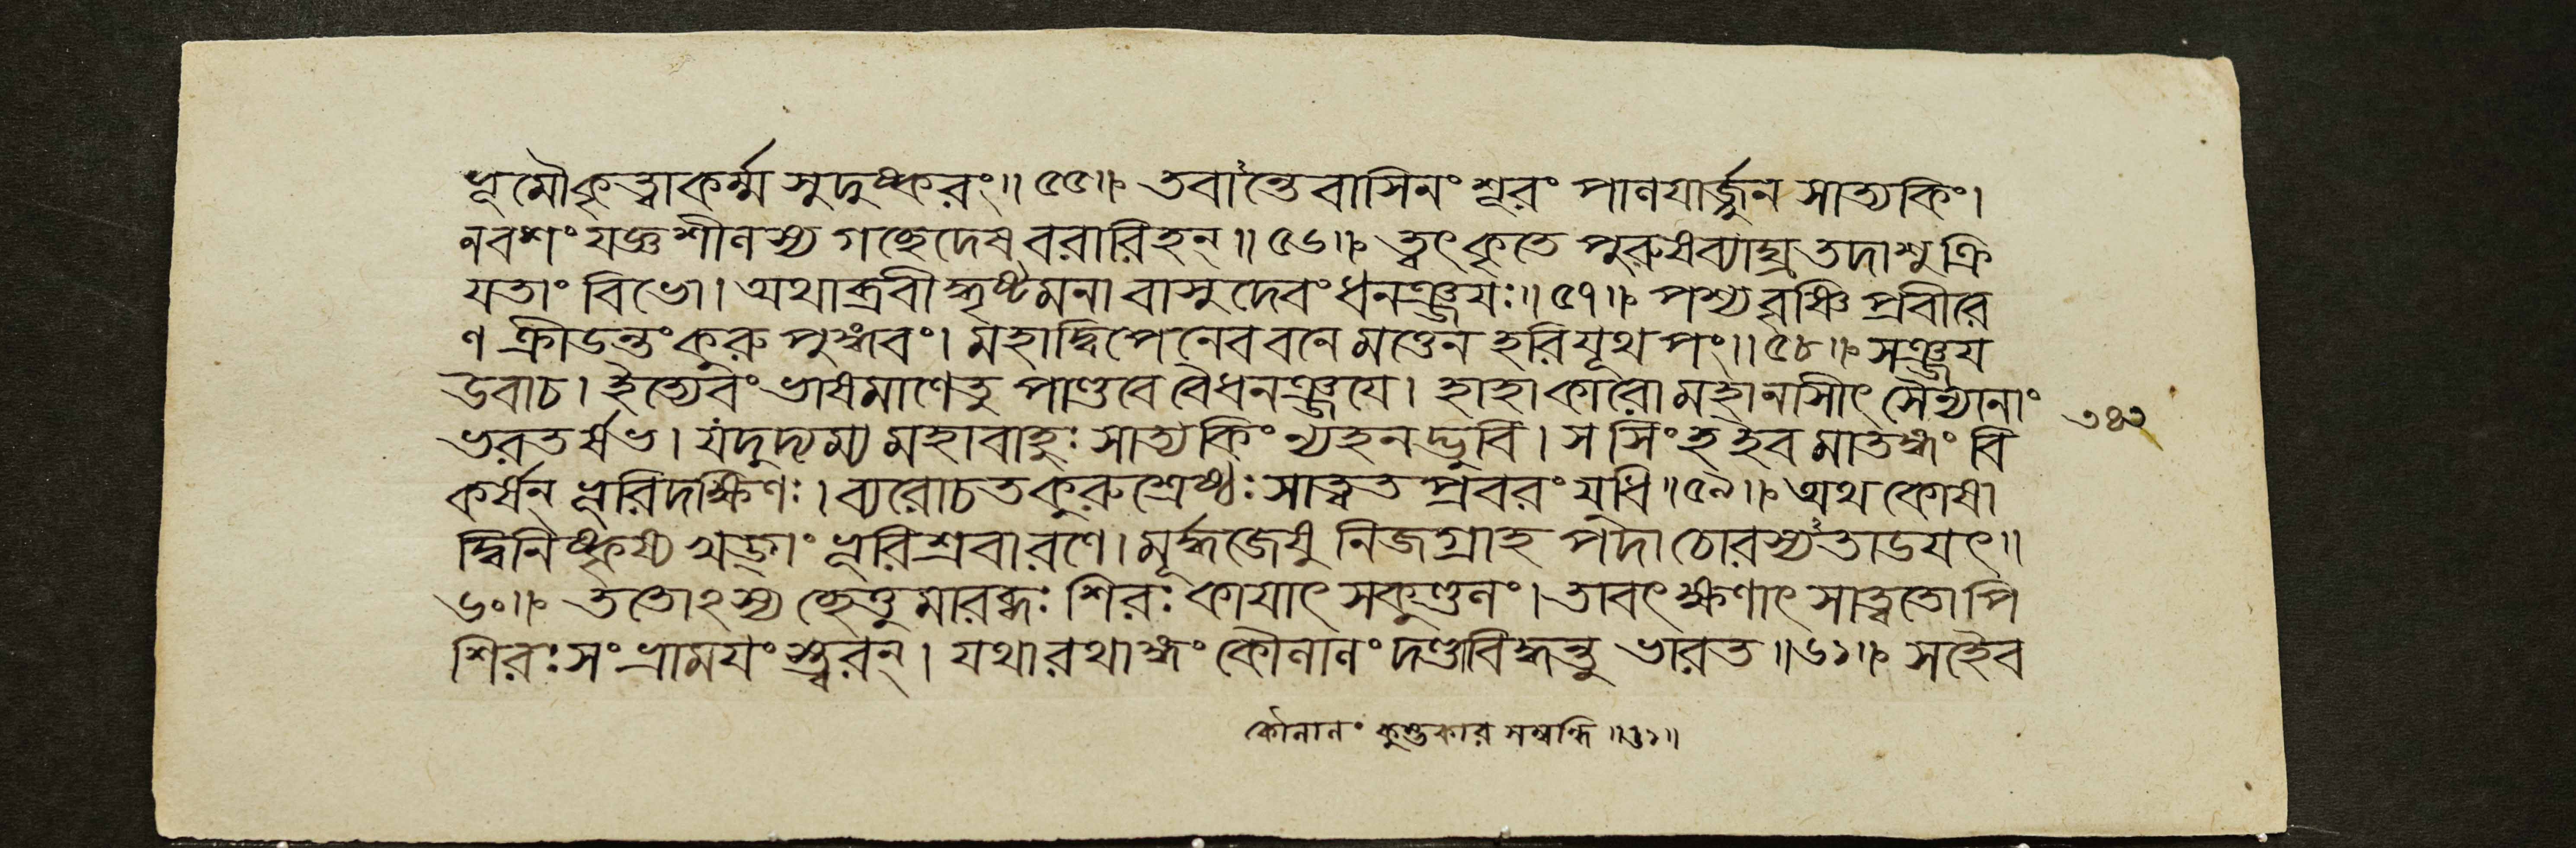 ভূমৌকৃত্বাকর্ম্ম সুদুষ্করং॥ ৫৫॥ তবান্তেবাসিনং শূরং পালযার্জ্জুন সাত্যকিং।
নবশং যজ্ঞশীলস্য গচ্ছেদেষ বরারিহন্॥ ৫৬॥ ত্বৎকৃতে পুরুষব্যাঘ্র তদাশু ক্রি
যতাং বিভো। অথাব্রবীদ্ধৃষ্টমনা বাসুদেবং ধনঞ্জযঃ॥ ৫৭॥ পশ্য বৃষ্ণি প্রবীরে
ণ ক্রীডন্তং কুরু পুঙ্গবং। মহাদ্বিপেনেব বনে মত্তেন হরিযূথ পং॥ ৫৮॥ সঞ্জয
উবাচ। ইত্যেবং ভাষমাণে তু পাণ্ডবে বৈ ধনঞ্জযে। হাহাকারো মহানাসীৎ সৈন্যানাং
ভরতর্ষভ। যদুদ্যম্য মহাবাহুঃ সাত্যকিং ন্যহনদ্ভুবি। স সিংহ ইব মাতঙ্গং বি
কর্ষন্ ভূরিদক্ষিণঃ। ব্যরোচত কুরুশ্রেষ্ঠঃ সাত্বত প্রবরং যুধি॥ ৫৯॥ অথ কোষা
দ্বিনিষ্কৃষ্য খড্গং ভূরিশ্রবা রণে। মূর্দ্ধজেষু নিজগ্রাহ পদা চোরস্যতাডযৎ॥
৬০॥ ততোঽস্য ছেত্তুমারব্ধঃ শিরঃ কাযাৎ সকুণ্ডলং। তাবৎ ক্ষণাৎ সাত্বতোপি
শিরঃ সংভ্রামযংস্ত্বরন্। যথা রথাঙ্গং কৌলালং দণ্ডবিদ্ধন্তু ভারত॥ ৬১॥ সহৈব
৩৪২
কৌলালং কুম্ভকার সম্বন্ধি॥৬১॥